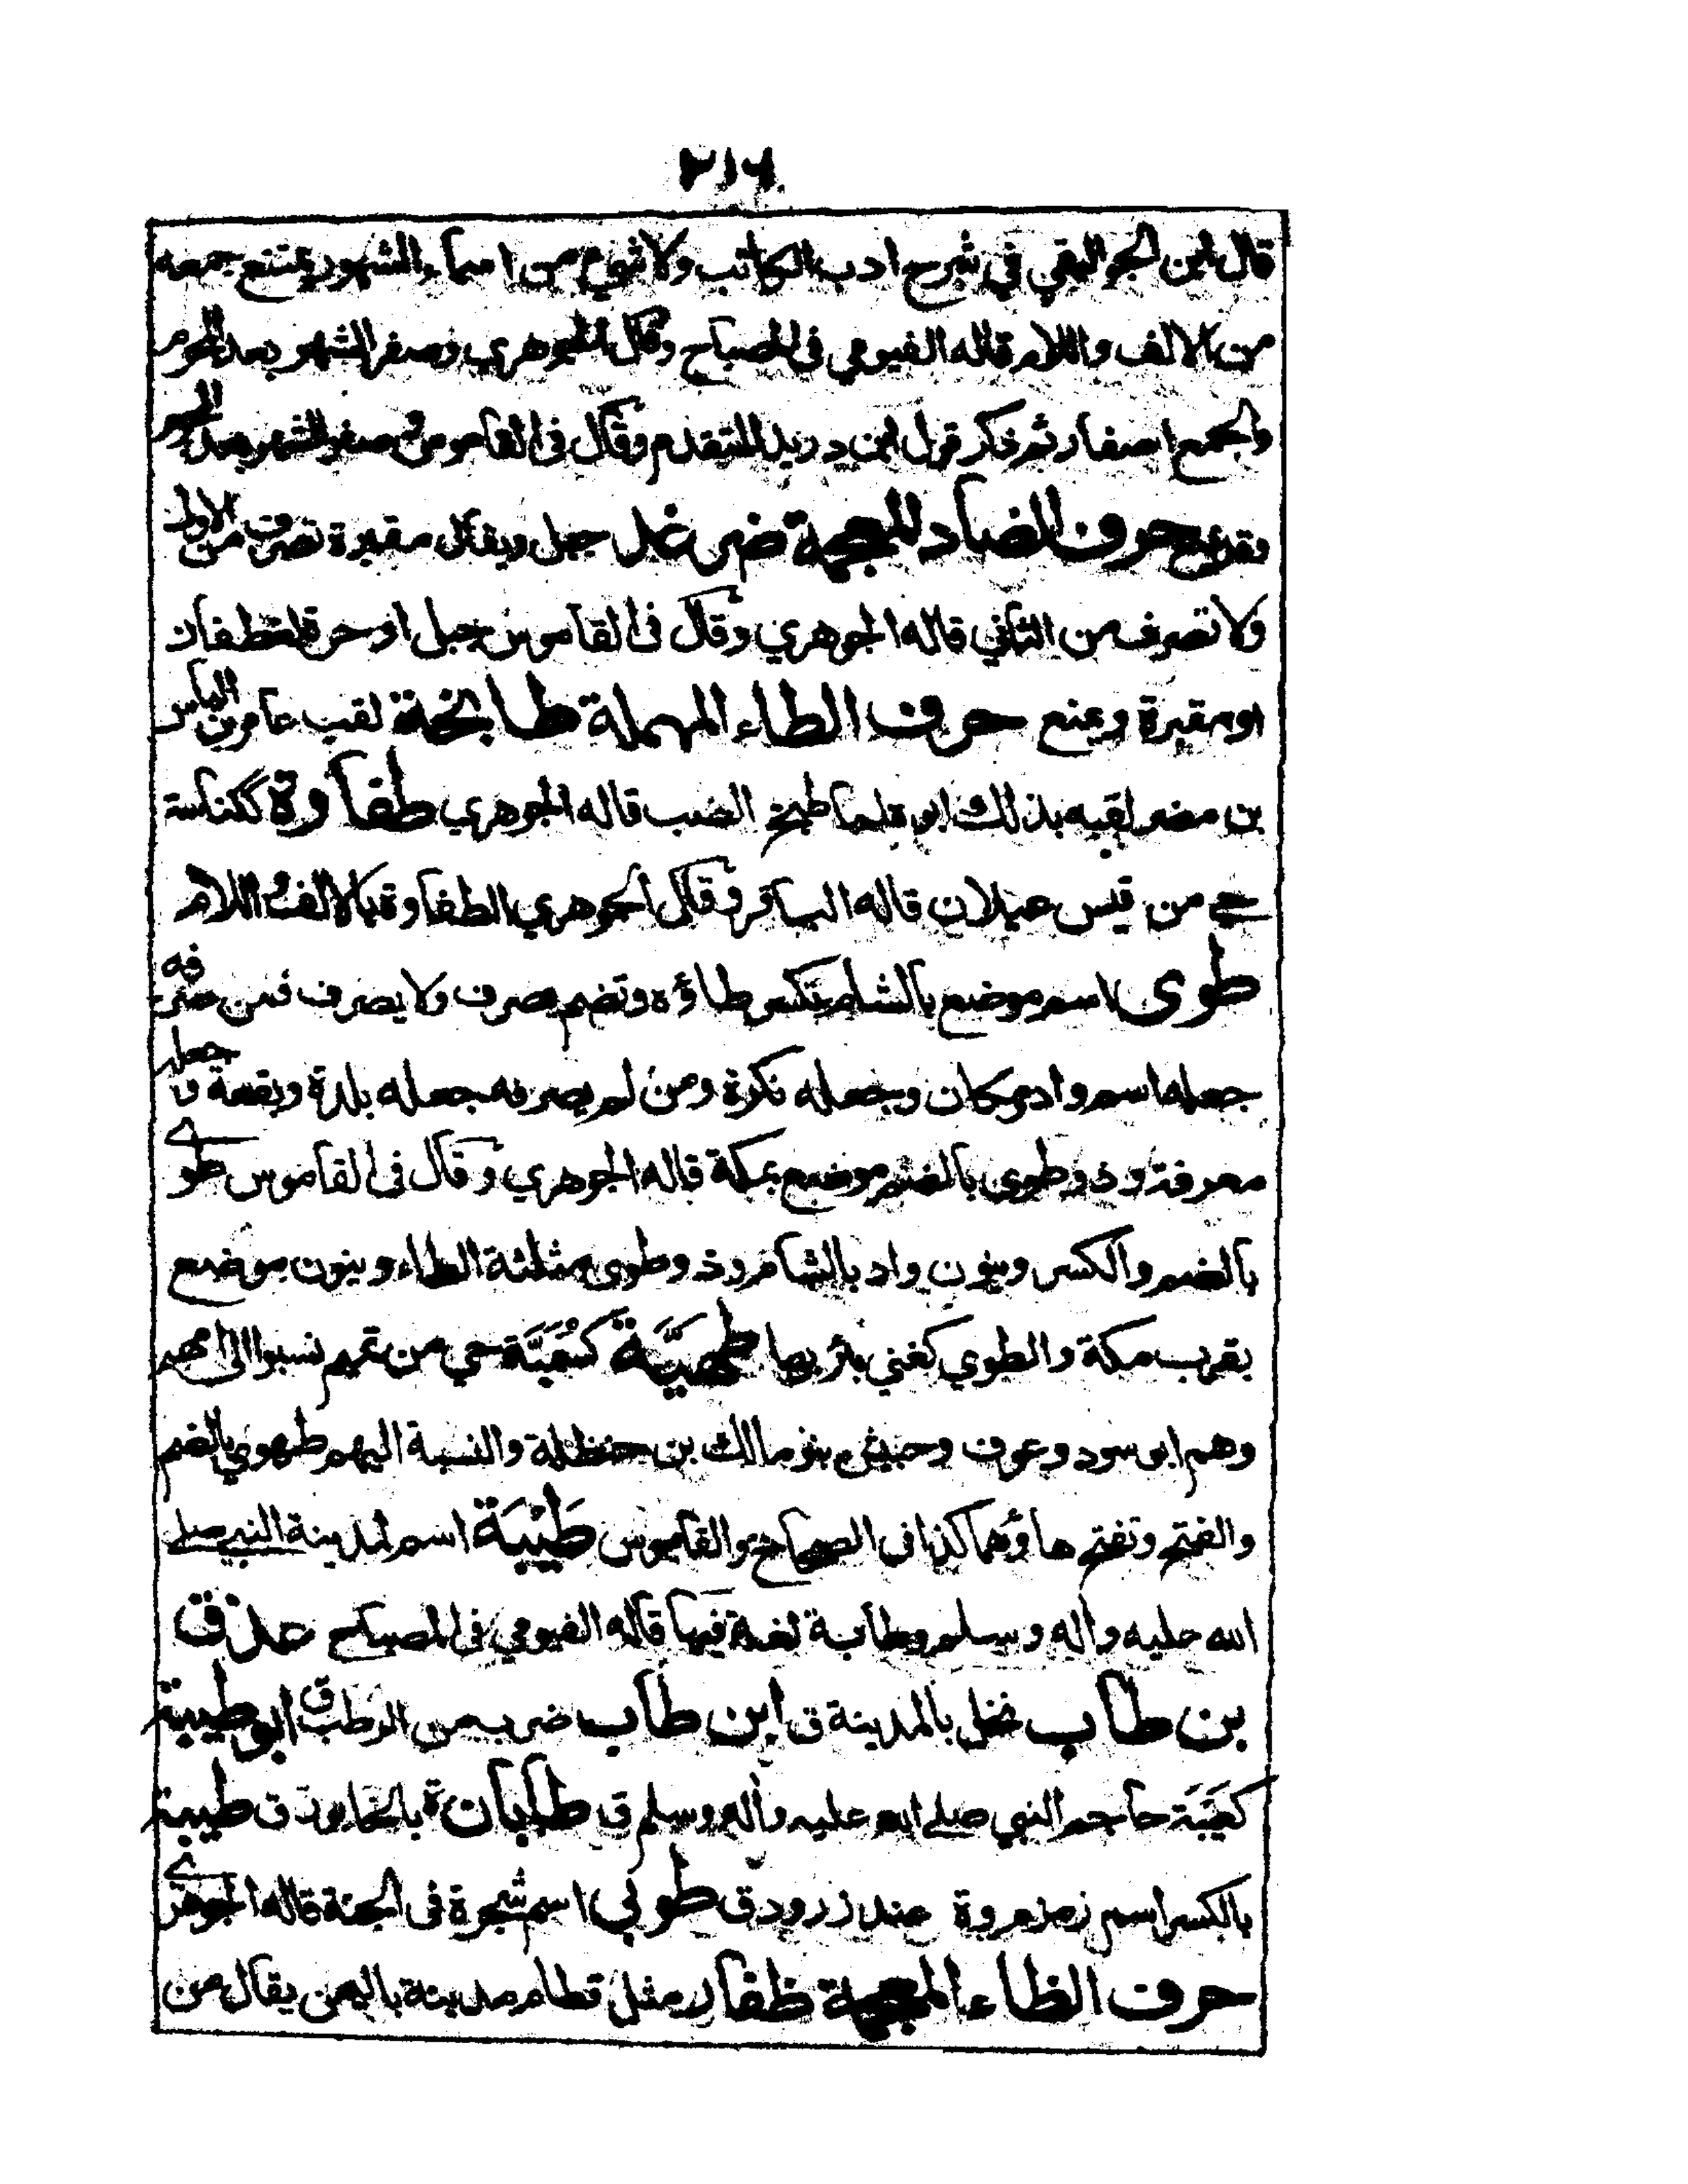 ٢١٦
قال ابن الجواليقي في شرح ادب الكاتب ولا شيء من اسماء الشهور يمتنع جمعه
من الالف واللام قاله الفيومي فى المصباح وقال الجوهري وصفر الشهر بعد المحرم
والجمع اصفار ثم ذكر قول ابن دريد المتقدم وقال فى القاموس صفر الشهر بعد المحرم
وقد يمنع حرف الضاد المعجمة ضرغد جبل ويقال مقبرة تصرف من الاول
ولا تصرف من الثاني قاله الجوهري وقال فى القاموس جبل او حرة لغطفان
او مقبرة ويمنع حرف الطاء المهملة طابخة لقب عامر بن الياس
بن مضر لقبه بذلك ابوه لما طبخ الضب قاله الجوهري طفاوة ككناسة
حي من قيس عيلان قاله الباقر وقال الجوهري الطفاوة بالالف واللام
طوى اسم موضع بالشام تكسر طاؤه وتضم يصرف ولا يصرف فمن صرفه
جعله اسم واد ومكان وجعله نكرة ومن لم يصرفه جعله بلدة وبقعة وجعله
معرفة وذو طوى بالضم موضع بمكة قاله الجوهري وقال فى القاموس طوى
بالضم والكسر وينون واد بالشام وذو طوى مثلثة الطاء وينون موضع
بقرب مكة والطوي كغني بئر بها طهيَّة كسُمَيَّة حي من تميم نسبوا الى امهم
وهم ابو سود وعوف وحبيش بنو مالك بن حنظلة والنسبة اليهم طهوي بالضم
والفتح وتفتح هاؤهما كذا فى الصحاح والقاموس طَيْبَة اسم لمدينة النبي صلى
الله عليه واله وسلم وطابة لغة فيها قاله الفيومي فى المصباح عذق
بن طاب نخل بالمدينة ق ابن طاب ضرب من الرطب ق ابو طيبة
كعَيْبَة حاجم النبي صلى الله عليه واله وسلم ق طابان ة بالخابور ق طيبة
بالكسر اسم زمزم وة عند زرود ق طوبى اسم شجرة فى الجنة قاله الجوهري
حرف الظاء المعجمة ظفار مثل قطام مدينة باليمن يقال من